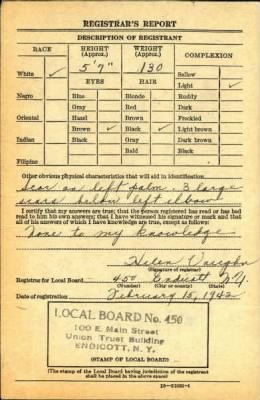 REGISTRAR'S REPORT
DESCRIPTION OF REGISTRANT
RACE HEIGHT (Approx.) WEIGHT (Approx.) COMPLEXION
5'7" 130
White ✓ EYES HAIR Sallow
Light ✓
Negro Blue Blonde Ruddy
Gray Red Dark
Oriental Hazel Brown Freckled
Brown ✓ Black ✓ Light brown
Indian Black Gray Dark brown
Bald Black
Filipino
Other obvious physical characteristics that will aid in identification
Scar on left palm. 3 large
scars below left elbow
I certify that my answers are true; that the person registered has read or has had
read to him his own answers; that I have witnessed his signature or mark and that
all of his answers of which I have knowledge are true, except as follows:
None to my knowledge
Helen Vaughn
(Signature of registrar)
Registrar for Local Board 450 Endicott N.Y.
(Number) (City or county) (State)
Date of registration February 15, 1942
LOCAL BOARD No. 450
100 E. Main Street
Union Trust Building
ENDICOTT, N. Y.
(STAMP OF LOCAL BOARD)
(The stamp of the Local Board having jurisdiction of the registrant
shall be placed in the above space)